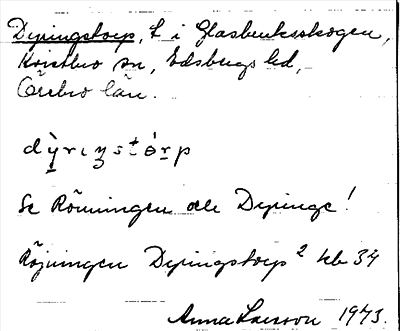 Dyringstorp, t i Glasbruksskogen,
Kvistbro sn, Edsbergs hd,
Örebro län.
dỳrɩŋstórp
Se Rönningen och Dyringe!
Röjningen Dyringstorp² kb 34
Anna Larsson 1943.